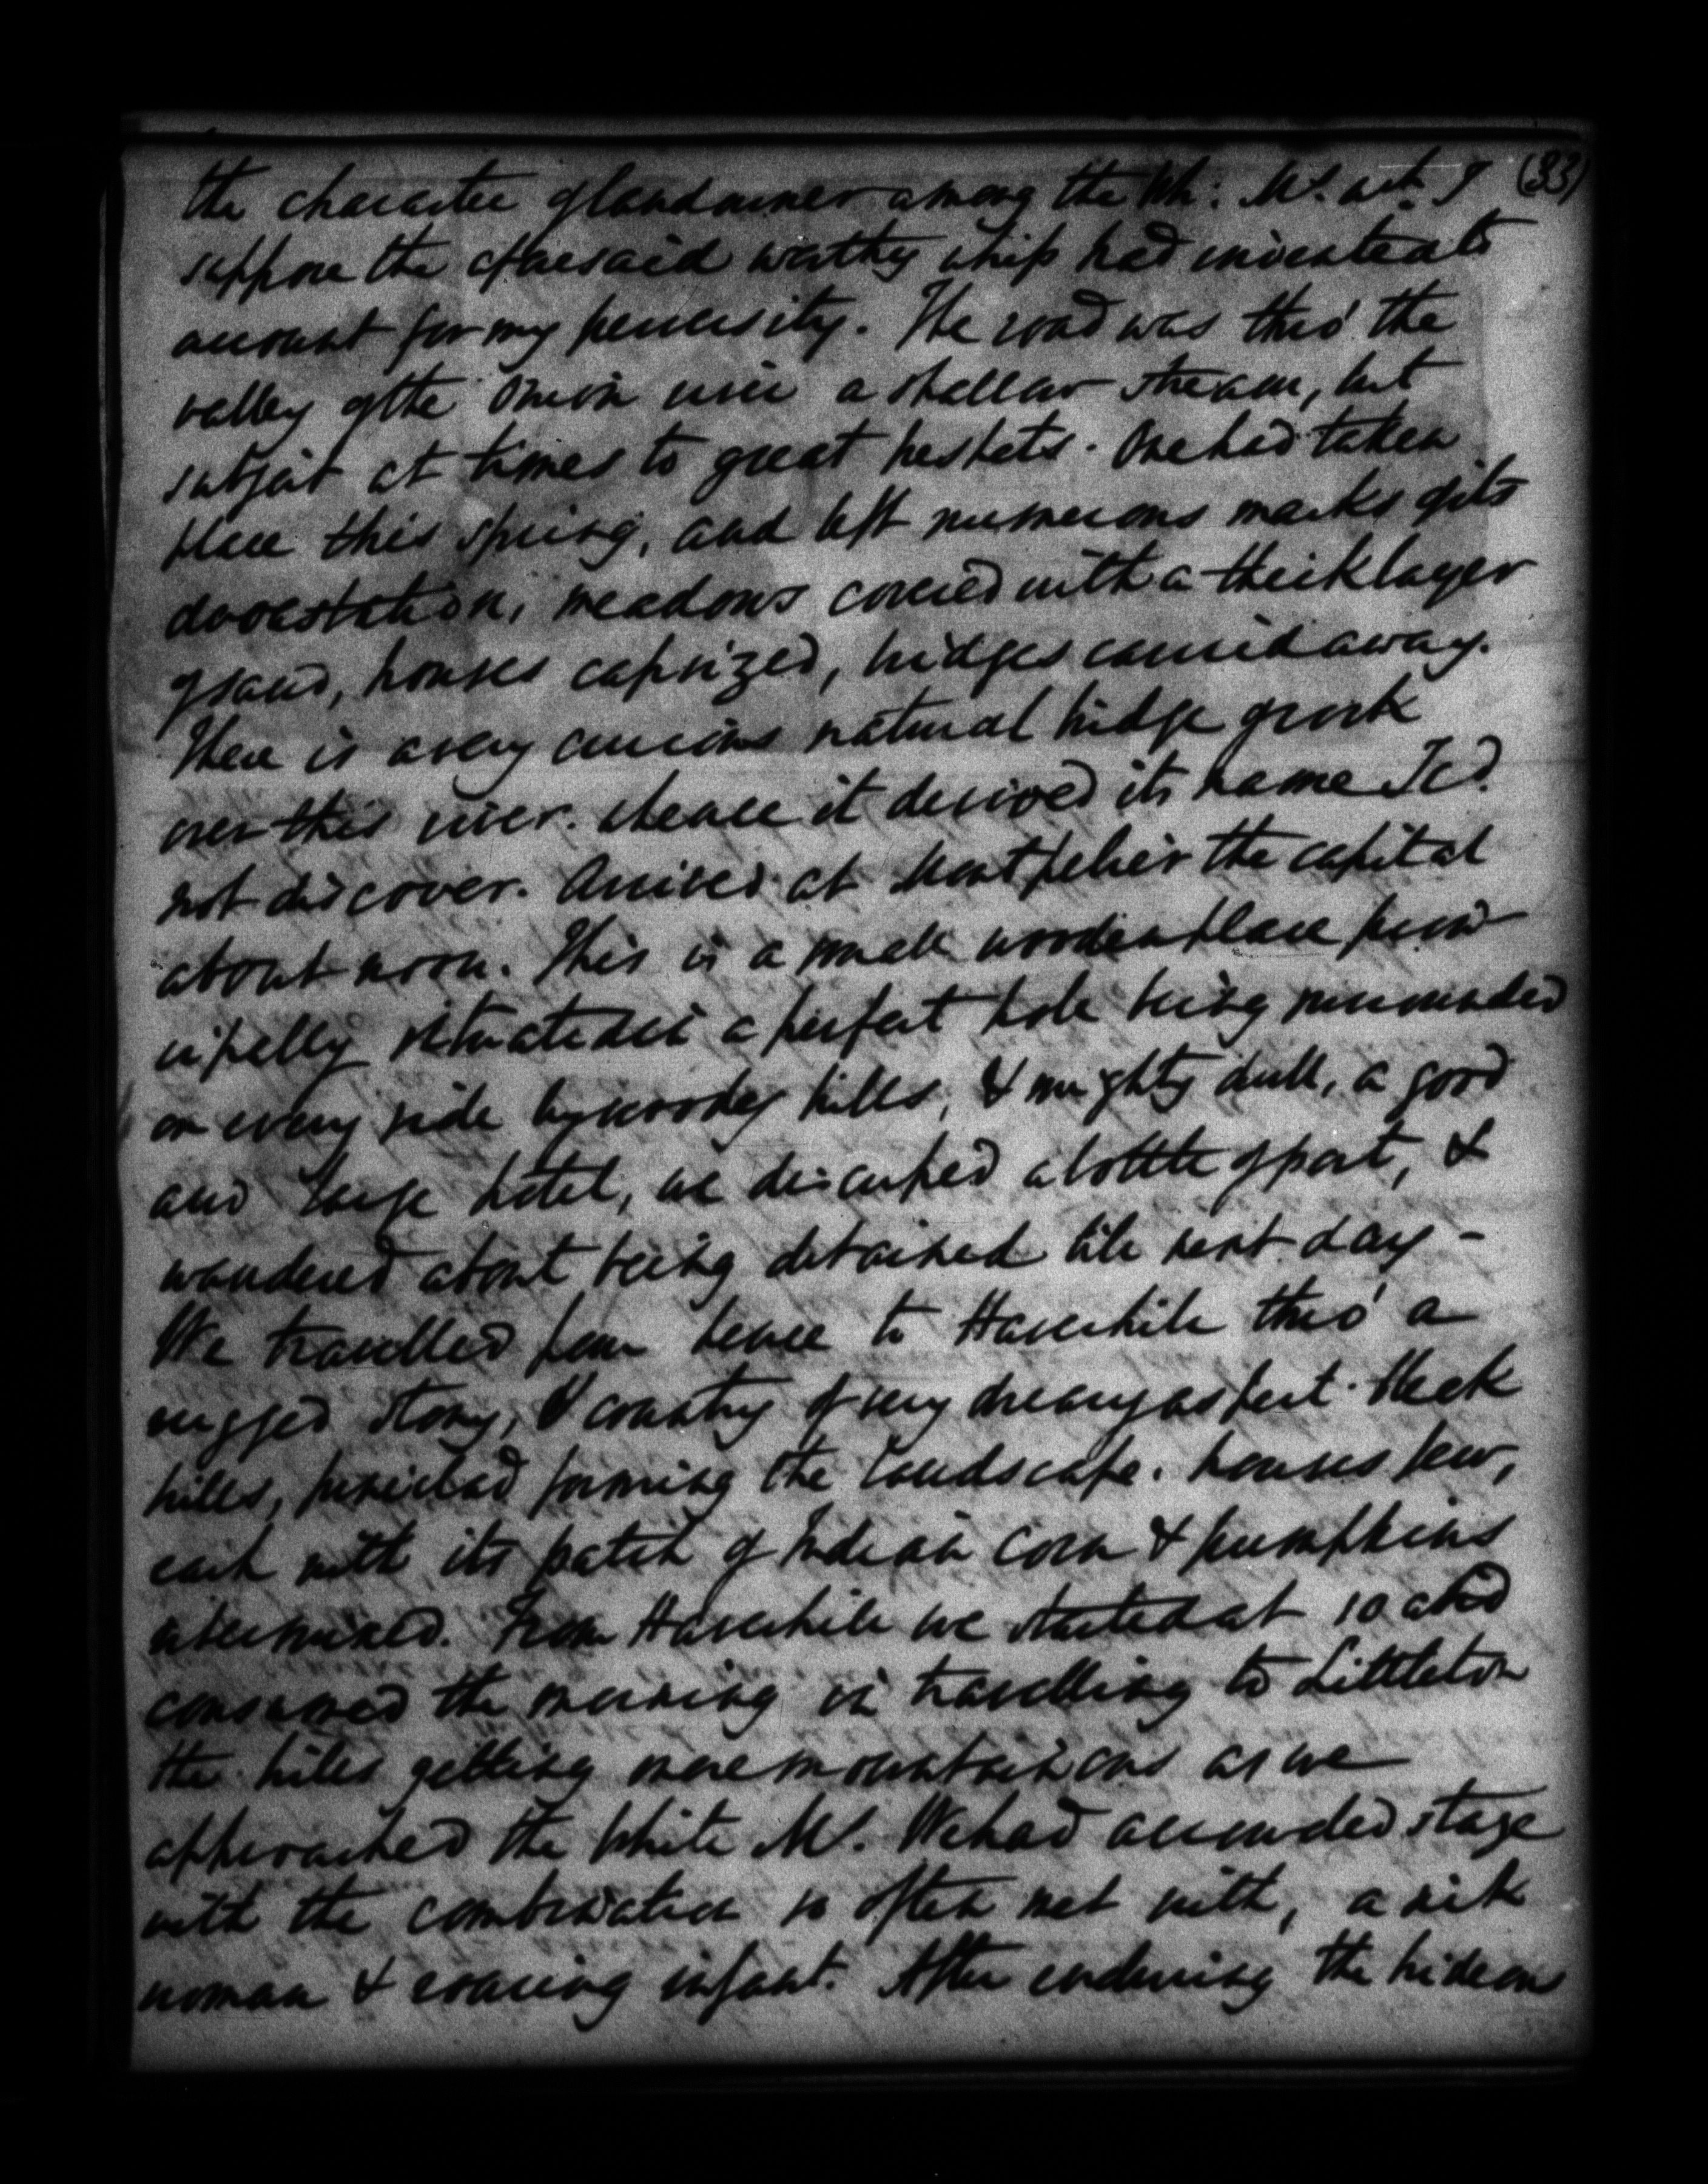 (33)
the character of landowner among the Wh: Ms. wh. I
suppose the aforesaid worthy whip had invented to
account for my perversity. The road was thro' the
valley of the Onion river a shallow stream, but
subject at times to great freshets. One had taken
place this spring, and left numerous marks of its
devastation, meadows covered with a thick layer
of sand, houses capsized, bridges carried away.
There is a very curious natural bridge of rock
over this river. whence it derived its name I cd.
not discover. Arrived at Montpelier the capital
about noon. This is a small wooden place prin
cipally situated in a perfect hole being surrounded
on every side by woody hills, & mighty dull, a good
and large hotel, we discussed a bottle of port, &
wandered about being detained till next day -
We travelled from hence to Haverhill thro' a
rugged stony, & country of very dreary aspect. bleak
hills, forming the landscape. houses few,
each with its patch of Indian corn & pumpkins
intermixed. From Haverhill we started at 10 and
consumed the morning in travelling to Littleton
the hills getting more mountainous as we
approached the White Ms. We had a crowded stage
with the combination so often met with, a sick
woman & roaring infant. After enduring the hideous